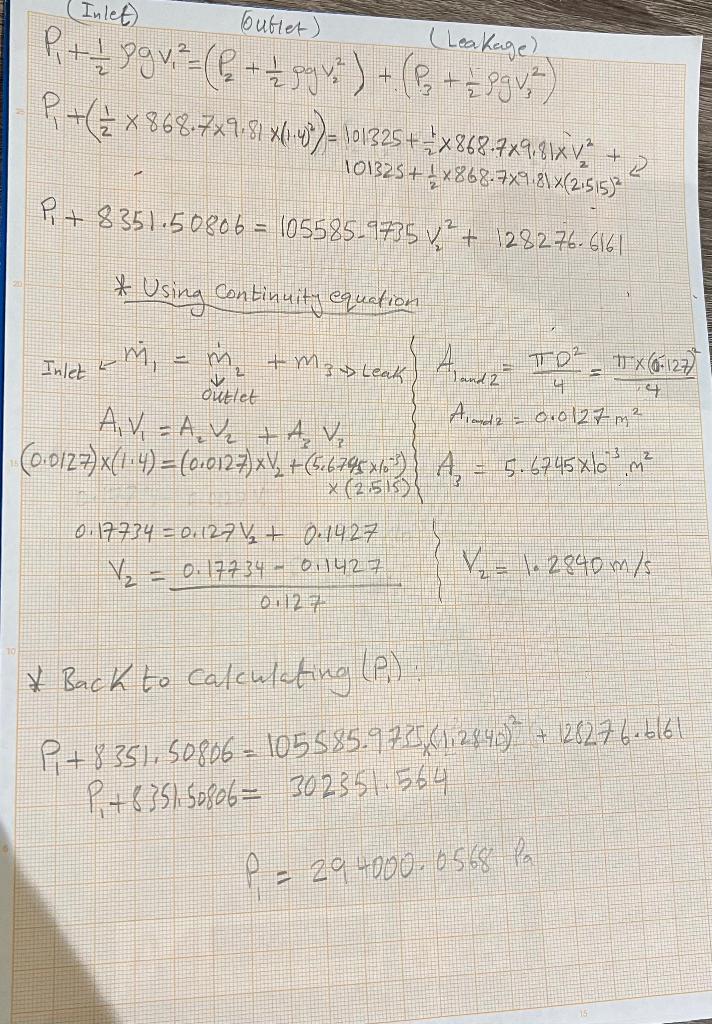 (Inlet) (Outlet) (Leakage)
P₁ + ½ ρgv₁² = (P₂ + ½ ρgv₂²) + (P₃ + ½ ρgv₃²)
P₁ + (½ × 868.7 × 9.81 × (1.4)²) = 101325 + ½ × 868.7 × 9.81 × V₂² +
101325 + ½ × 868.7 × 9.81 × (2.515)²
P₁ + 8351.50806 = 105585.9735 V₂² + 128276.6161
* Using Continuity equation
Inlet ← ṁ₁ = ṁ₂ + m₃ → Leak
↓
outlet
A₁V₁ = A₂V₂ + A₃V₃
(0.0127)×(1.4) = (0.0127)×V₂ + (5.6745×10⁻³)
×(2.515)
A₁and2 = πD²/4 = π×(0.127)²/4
A₁and2 = 0.0127 m²
A₃ = 5.6745×10⁻³ m²
0.17734 = 0.127V₂ + 0.1427
V₂ = 0.17734 - 0.1427
0.127
V₂ = 1.2840 m/s
* Back to calculating (P₁):
P₁ + 8351.50806 = 105585.9735(1.2840)² + 128276.6161
P₁ + 8351.50806 = 302351.564
P₁ = 294000.0568 Pa
25
20
15
10
5
15